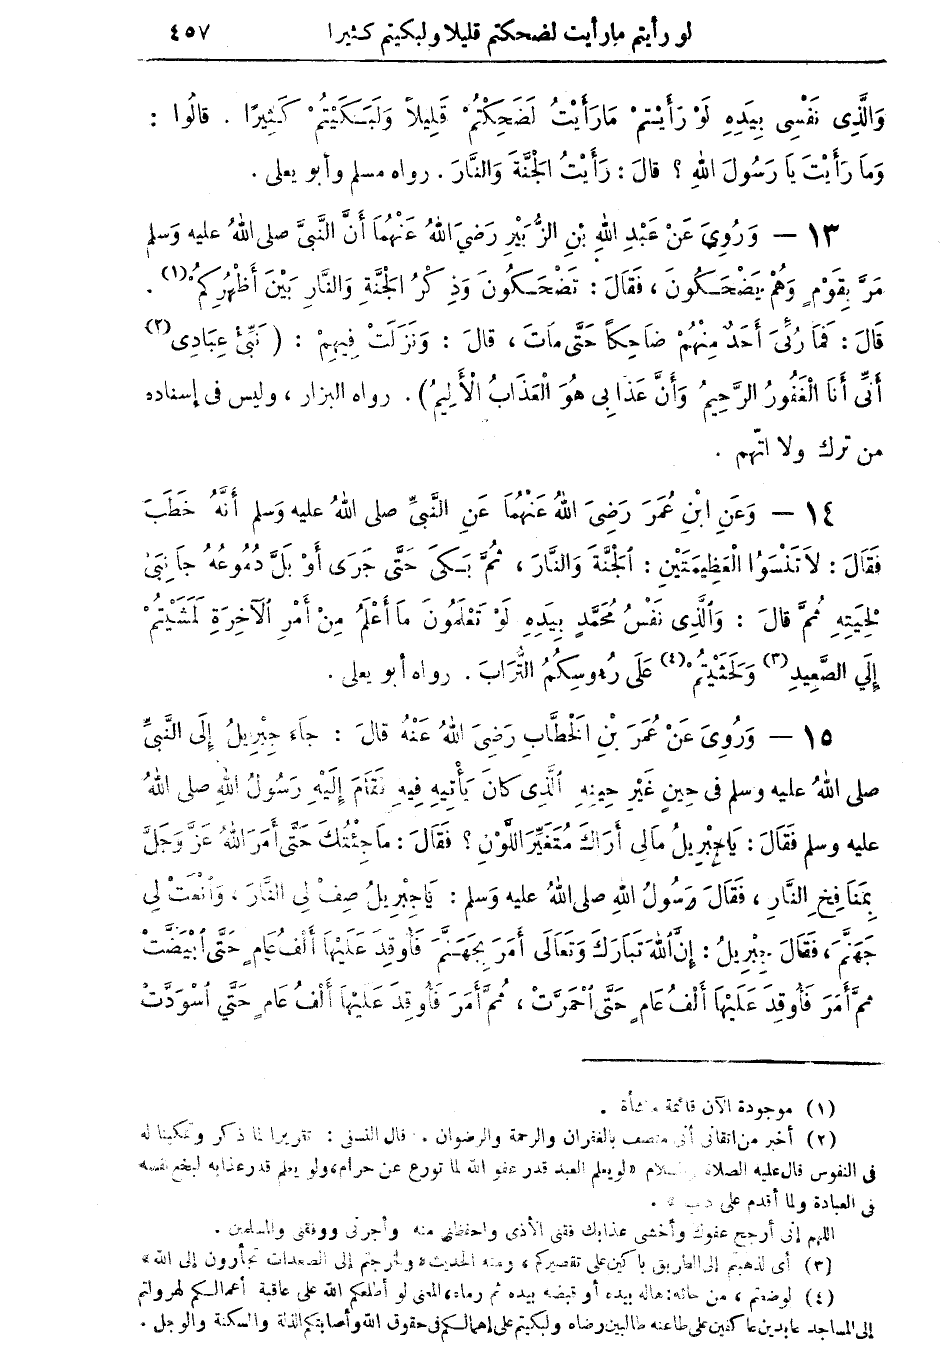 لو رأيتم ما رأيت لضحكتم قليلا ولبكيتم كثيرا ٤٥٧
وَالَّذِى نَفْسِى بِيَدِهِ لَوْ رَأَيْتُمْ مَا رَأَيْتُ لَضَحِكْتُمْ قَلِيلاً وَلَبَكَيْتُمْ كَثِيرًا . قالُوا :
وَمَا رَأَيْتَ يَا رَسُولَ اللهِ ؟ قالَ : رَأَيْتُ الْجَنَّةَ وَالنَّارَ . رواه مسلم وأبو يعلى .
١٣ — وَرُوِىَ عَنْ عَبْدِ اللهِ بْنِ الزُّبَيْرِ رَضِيَ اللهُ عَنْهُمَا أَنَّ النَّبِيَّ صلى اللهُ عليه وَسلم
مَرَّ بِقَوْمٍ وَهُمْ يَضْحَكُونَ ، فَقَالَ : تَضْحَكُونَ وَذِكْرُ الْجَنَّةِ وَالنَّارِ بَيْنَ أَظْهُرِكُمْ (١) .
قَالَ : فَمَا رُئِىَ أَحَدٌ مِنْهُمْ ضَاحِكاً حَتَّى مَاتَ ، قالَ : وَنَزَلَتْ فِيهِمْ : ( نَبِّئْ عِبَادِى (٢)
أَنِّى أَنَا الْغَفُورُ الرَّحِيمُ وَأَنَّ عَذَابِى هُوَ الْعَذَابُ الْأَلِيمُ ) . رواه البزار ، وليس فى إسناده
من ترك ولا اتّهم .
١٤ — وَعَنِ ابْنِ عُمَرَ رَضِىَ اللهُ عَنْهُمَا عَنِ النَّبِىِّ صلى اللهُ عليه وَسلم أَنَّهُ خَطَبَ
فَقَالَ : لاَ تَنْسَوُا الْعَظِيمَتَيْنِ : الْجَنَّةَ وَالنَّارَ ، ثُمَّ بَكَىَ حَتَّى جَرَى أَوْ بَلَّ دُمُوعُهُ جَانِبَىْ
لِحْيَتِهِ ثُمَّ قالَ : وَالَّذِى نَفْسُ مُحَمَّدٍ بِيَدِهِ لَوْ تَعْلَمُونَ مَا أَعْلَمُ مِنْ أَمْرِ الْآخِرَةِ لَمَشَيْتُمْ
إِلَي الصَّعِيدِ (٣) وَلَحَثَيْتُمْ (٤) عَلَى رُءوسِكُمُ التُّرَابَ . رواه أبو يعلى .
١٥ — وَرُوِىَ عَنْ عُمَرَ بْنِ الْخَطَّابِ رَضِىَ اللهُ عَنْهُ قالَ : جاءَ جِبْرِيلُ إِلَى النَّبِىِّ
صلى اللهُ عليه وسلم فى حِينٍ غَيْرِ حِينِهِ الَّذِى كَانَ يَأْتِيهِ فِيهِ فَقَامَ إِلَيْهِ رَسُولُ اللهِ صلى اللهُ
عليه وسلم فَقَالَ : يَا جِبْرِيلُ مَالِى أَرَاكَ مُتَغَيِّرَ اللَّوْنِ ؟ فَقَالَ : مَا جِئْتُكَ حَتَّى أَمَرَ اللهُ عَزَّ وَجَلَّ
بِمَنَافِخِ النَّارِ ، فَقَالَ رَسُولُ اللهِ صلى اللهُ عليه وَسلم : يَا جِبْرِيلُ صِفْ لِي النَّارَ ، وَانْعَتْ لِي
جَهَنَّمَ ، فَقَالَ جِبْرِيلُ : إِنَّ اللهَ تَبَارَكَ وَتَعَالَى أَمَرَ بِجَهَنَّمَ فَأُوقِدَ عَلَيْهَا أَلْفُ عَامٍ حَتَّى ابْيَضَّتْ
ثمَّ أَمَرَ فَأُوقِدَ عَلَيْهَا أَلْفُ عَامٍ حَتَّى احْمَرَّتْ ، ثُمَّ أَمَرَ فَأُوقِدَ عَلَيْهَا أَلْفُ عَامٍ حَتَّي اسْوَدَّتْ
(١) موجودة الآن قائمة منشأة .
(٢) أخبر من اتقانى أنى متصف بالغفران والرحمة والرضوان . قال النسفى : تقريرا لما ذكر وتمكينا له
فى النفوس قال عليه الصلاة والسلام « لو يعلم العبد قدر عفو الله لما تورع عن حرام ، ولو يعلم قدر عذابه لبخع نفسه
فى العبادة ولما أقدم على ذنب » .
اللهم إنى أرجع عفوك وأخشى عذابك فقنى الأذى واحفظنى منه وأجرنى ووفقنى والمسلمين .
(٣) أى لذهبتم إلى الطريق باكين على تقصيركم ، ومنه الحديث « ولخرجتم إلى الصعدات تجأرون إلى الله »
(٤) لوضعتم ، من حثاه : هاله بيده أو قبضه بيده ثم رماه ، المعنى لو أطلعكم الله على عاقبة أعمالكم لهرولتم
إلى المساجد عابدين عاكفين على طاعته طالبين رضاه ولبكيتم على إهمالكم فى حقوق الله وأصابتكم الذلة والسكنة والوجل .